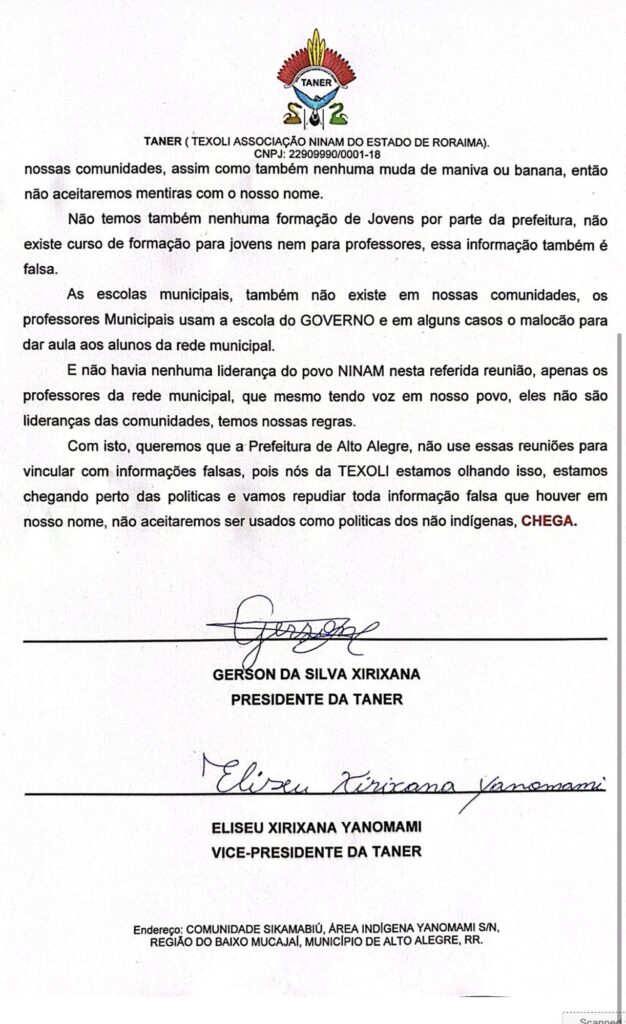 TANER
TANER ( TEXOLI ASSOCIAÇÃO NINAM DO ESTADO DE RORAIMA).
CNPJ: 22909990/0001-18
nossas comunidades, assim como também nenhuma muda de maniva ou banana, então
não aceitaremos mentiras com o nosso nome.
Não temos também nenhuma formação de Jovens por parte da prefeitura, não
existe curso de formação para jovens nem para professores, essa informação também é
falsa.
As escolas municipais, também não existe em nossas comunidades, os
professores Municipais usam a escola do GOVERNO e em alguns casos o malocão para
dar aula aos alunos da rede municipal.
E não havia nenhuma liderança do povo NINAM nesta referida reunião, apenas os
professores da rede municipal, que mesmo tendo voz em nosso povo, eles não são
lideranças das comunidades, temos nossas regras.
Com isto, queremos que a Prefeitura de Alto Alegre, não use essas reuniões para
vincular com informações falsas, pois nós da TEXOLI estamos olhando isso, estamos
chegando perto das politicas e vamos repudiar toda informação falsa que houver em
nosso nome, não aceitaremos ser usados como politicas dos não indígenas, CHEGA.
Gerson
GERSON DA SILVA XIRIXANA
PRESIDENTE DA TANER
Eliseu Xirixana Yanomami
ELISEU XIRIXANA YANOMAMI
VICE-PRESIDENTE DA TANER
Endereço: COMUNIDADE SIKAMABIÚ, ÁREA INDÍGENA YANOMAMI S/N,
REGIÃO DO BAIXO MUCAJAÍ, MUNICÍPIO DE ALTO ALEGRE, RR.
Scanned